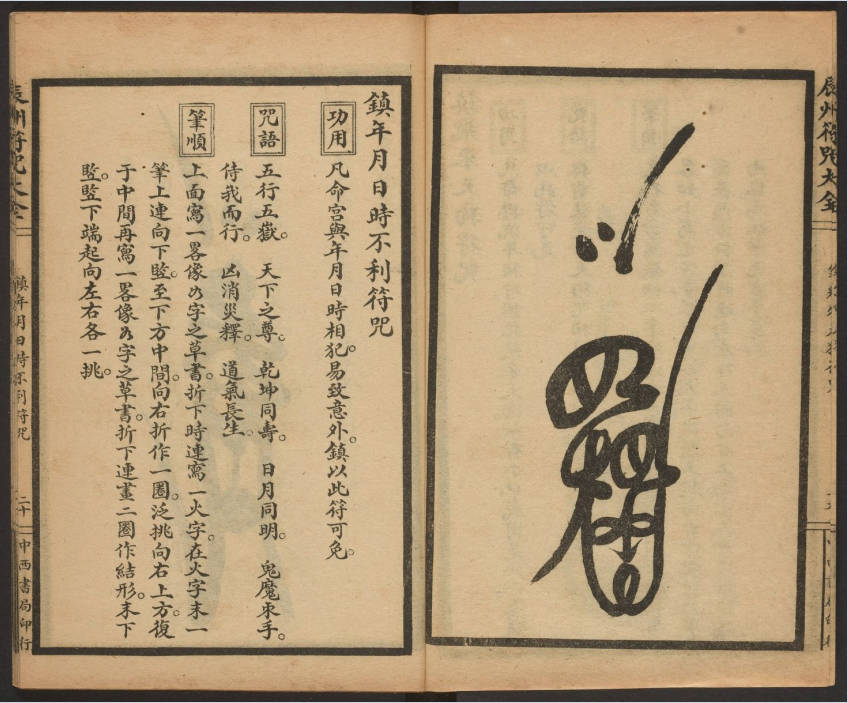 辰州符咒大全
鎮年月日時不利符咒
功用
凡命宮與年月日時相犯。易致意外。鎮以此符可免。
咒語
五行五嶽。天下之尊。乾坤同壽。日月同明。鬼魔束手。
侍我而行。凶消災釋。道氣長生。
筆順
上面寫一畧像以字之草書。折下時連寫一火字。在火字末一
筆上連向下竪。至下方中間。向右折作一圈。泛挑向右上方。復
于中間再寫一畧像以字之草書。折下連畫二圈作結形。末下
竪。竪下端起向左右各一挑。
辰州符咒大全
鎮年月日時不利符咒
二十
中西書局印行